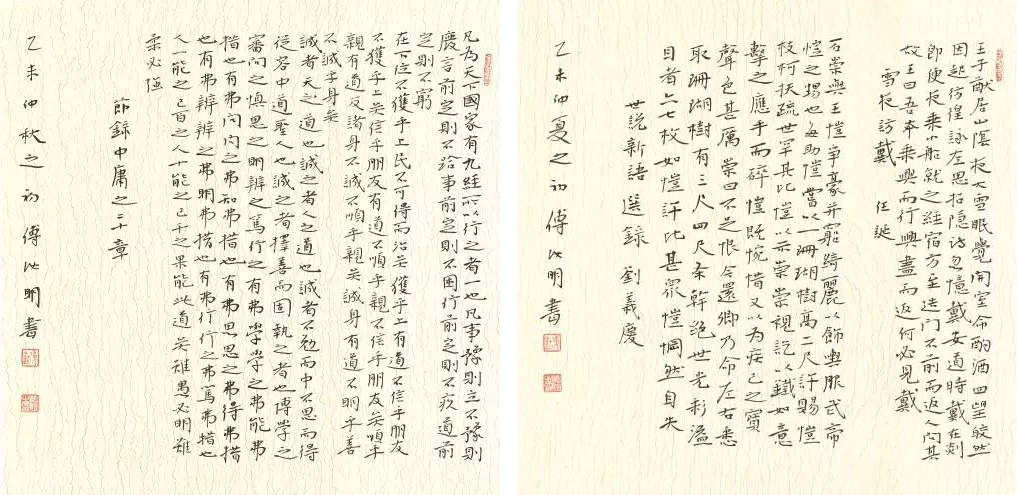 王子猷居山陰夜大雪眠覺開室命酌酒四望皎然
因起彷徨詠左思招隱詩忽憶戴安道時戴在剡
即便夜乘小船就之經宿方至造門不前而返人問其
故王曰吾本乘興而行興盡而返何必見戴
雪夜訪戴 任誕
石崇與王愷爭豪并窮綺麗以飾輿服武帝
愷之甥也每助愷嘗以一珊瑚樹高二尺許賜愷
枝柯扶疏世罕其比愷以示崇崇視訖以鐵如意
擊之應手而碎愷既惋惜又以為疾己之寶
聲色甚厲崇曰不足恨今還卿乃命左右悉
取珊瑚樹有三尺四尺条幹絕世光彩溢
目者六七枚如愷許比甚眾愷惘然自失
世說新語 選錄 劉義慶
乙未仲夏之初 傅明書
凡為天下國家有九經所以行之者一也凡事豫則立不豫則
廢言前定則不跲事前定則不困行前定則不疚道前
定則不窮
在下位不獲乎上民不可得而治矣獲乎上有道不信乎朋友
不獲乎上矣信乎朋友有道不順乎親不信乎朋友矣順乎
親有道反諸身不誠不順乎親矣誠身有道不明乎善
不誠乎身矣
誠者天之道也誠之者人之道也誠者不勉而中不思而得
從容中道聖人也誠之者擇善而固執之者也博學之
審問之慎思之明辨之篤行之有弗學學之弗能弗
措也有弗問問之弗知弗措也有弗思思之弗得弗措
也有弗辨辨之弗明弗措也有弗行行之弗篤弗措也
人一能之己百之人十能之己千之果能此道矣雖愚必明雖
柔必強
節錄中庸之二十章
乙未仲秋之初 傅明書